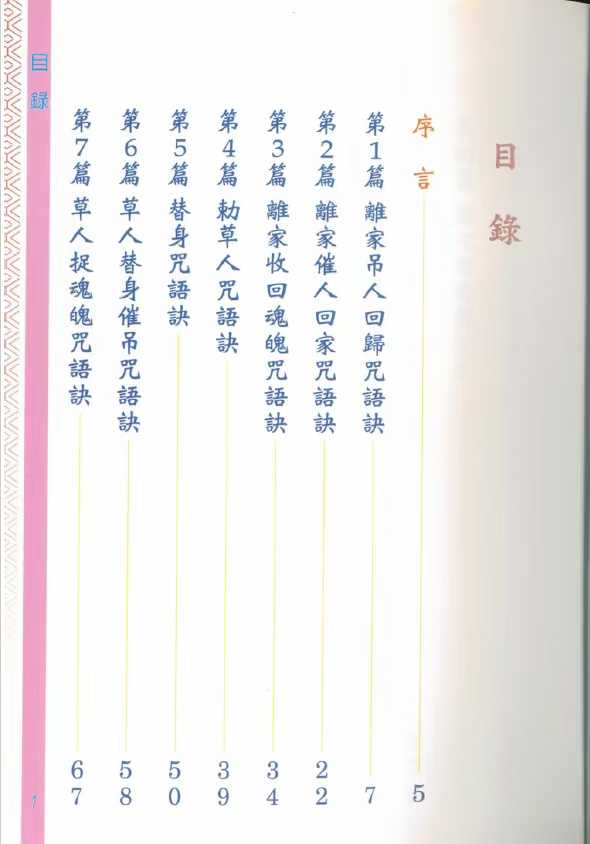 目錄
序言 5
第1篇 離家吊人回歸咒語訣 7
第2篇 離家催人回家咒語訣 22
第3篇 離家收回魂魄咒語訣 34
第4篇 勅草人咒語訣 39
第5篇 替身咒語訣 50
第6篇 草人替身催吊咒語訣 58
第7篇 草人捉魂魄咒語訣 67
目錄
1